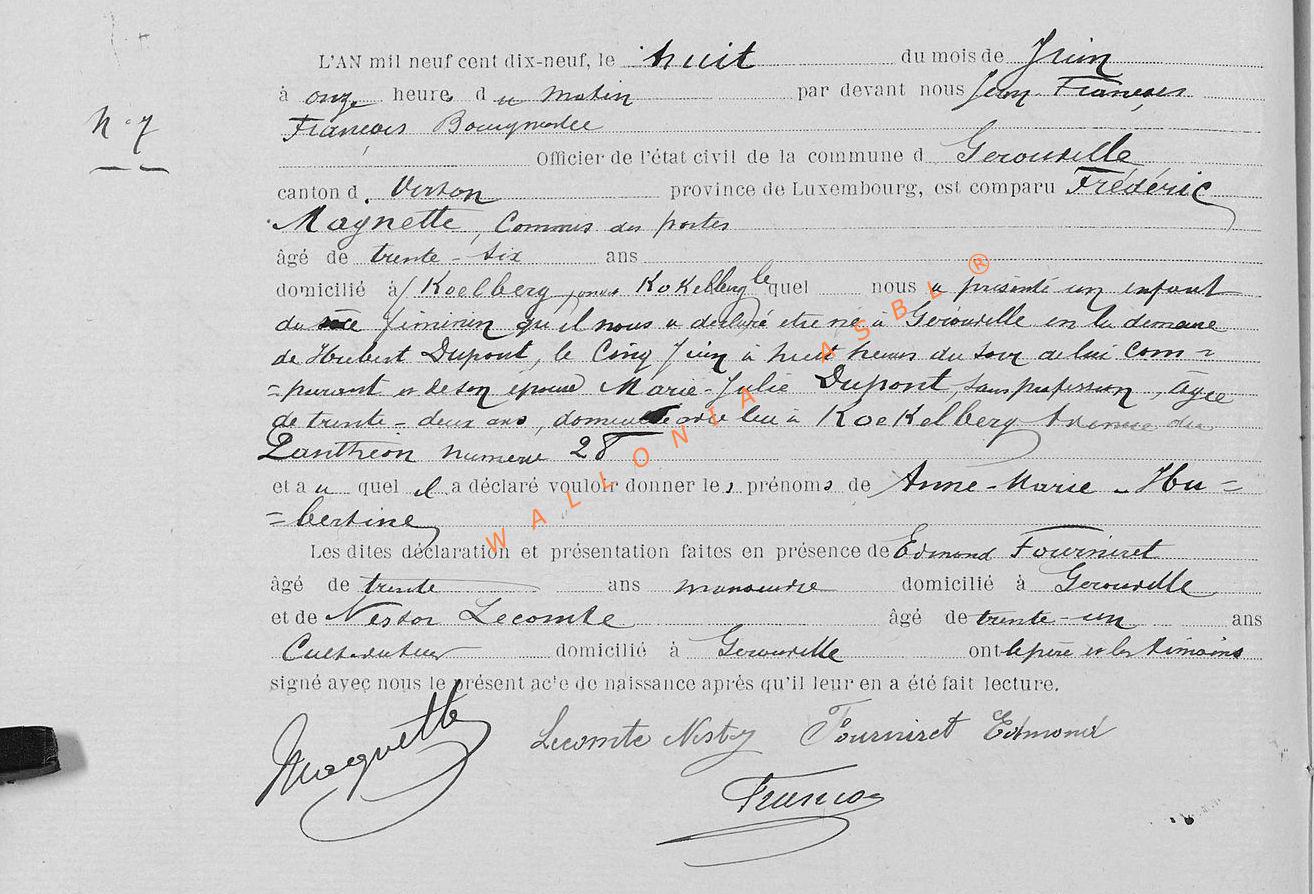 L'AN mil neuf cent dix-neuf, le huit du mois de Juin
N° 7
à onze heures du matin par devant nous Jean François
François Bourgmestre
Officier de l'état civil de la commune d Gérouville
canton d. Virton province de Luxembourg, est comparu Frédéric
Magnette, Commis des postes
âgé de trente-six ans
domicilié à Koelberg Kokelberg lequel nous a présenté un enfant
du sexe féminin qu'il nous a déclaré être né à Gérouville en la demeure
de Hubert Dupont, le Cinq Juin à huit heures du soir de lui Com-
=parant et de son épouse Marie-Julie Dupont, sans profession, âgée
de trente-deux ans, domiciliée avec lui à Koekelberg Avenue du
Panthéon numéro 28
et a u quel il a déclaré vouloir donner les prénoms de Anne-Marie-Hu=
=bertine
Les dites déclaration et présentation faites en présence de Edmond Fourniret
âgé de trente ans manoeuvre domicilié à Gérouville
et de Nestor Lecomte âgé de trente-un ans
Cultivateur domicilié à Gérouville ont le père et les témoins
signé avec nous le présent acte de naissance après qu'il leur en a été fait lecture.
Magnette Lecomte Nestor Fourniret Edmond
François
WALLONIA ASBL ®